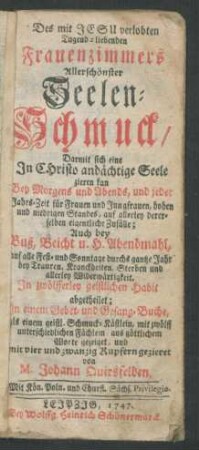 Des mit JESU verlobten
Tugend-liebenden
Frauenzimmers
Allerschönster
Seelen-
Schmuck/
Darmit sich eine
In Christo andächtige Seele
zieren kan
Bey Morgens und Abends, und jeder
Jahrs-Zeit für Frauen und Jungfrauen, hohen
und niedrigen Standes, auf allerley derer-
selben eigentliche Zufälle;
Auch bey
Buß, Beicht u. H. Abendmahl,
auf alle Fest- und Sonntage durchs gantze Jahr
bey Trauren, Kranckheiten, Sterben und
allerley Widerwärtigkeit.
In zwölfferley geistlichen Habit
abgetheilet;
In einem Gebet- und Gesang-Buche,
als einem geistl. Schmuck-Kästlein, mit zwölff
unterschiedlichen Fächlein aus göttlichem
Worte gezieret, und
mit vier und zwanzig Kupfern gezieret
von
M. Johann Quirsfelden,
Mit Kön. Poln. und Churfl. Sächs. Privilegio.
LEIPZIG, 1747.
Bey Wolffg. Heinrich Schönermarck.